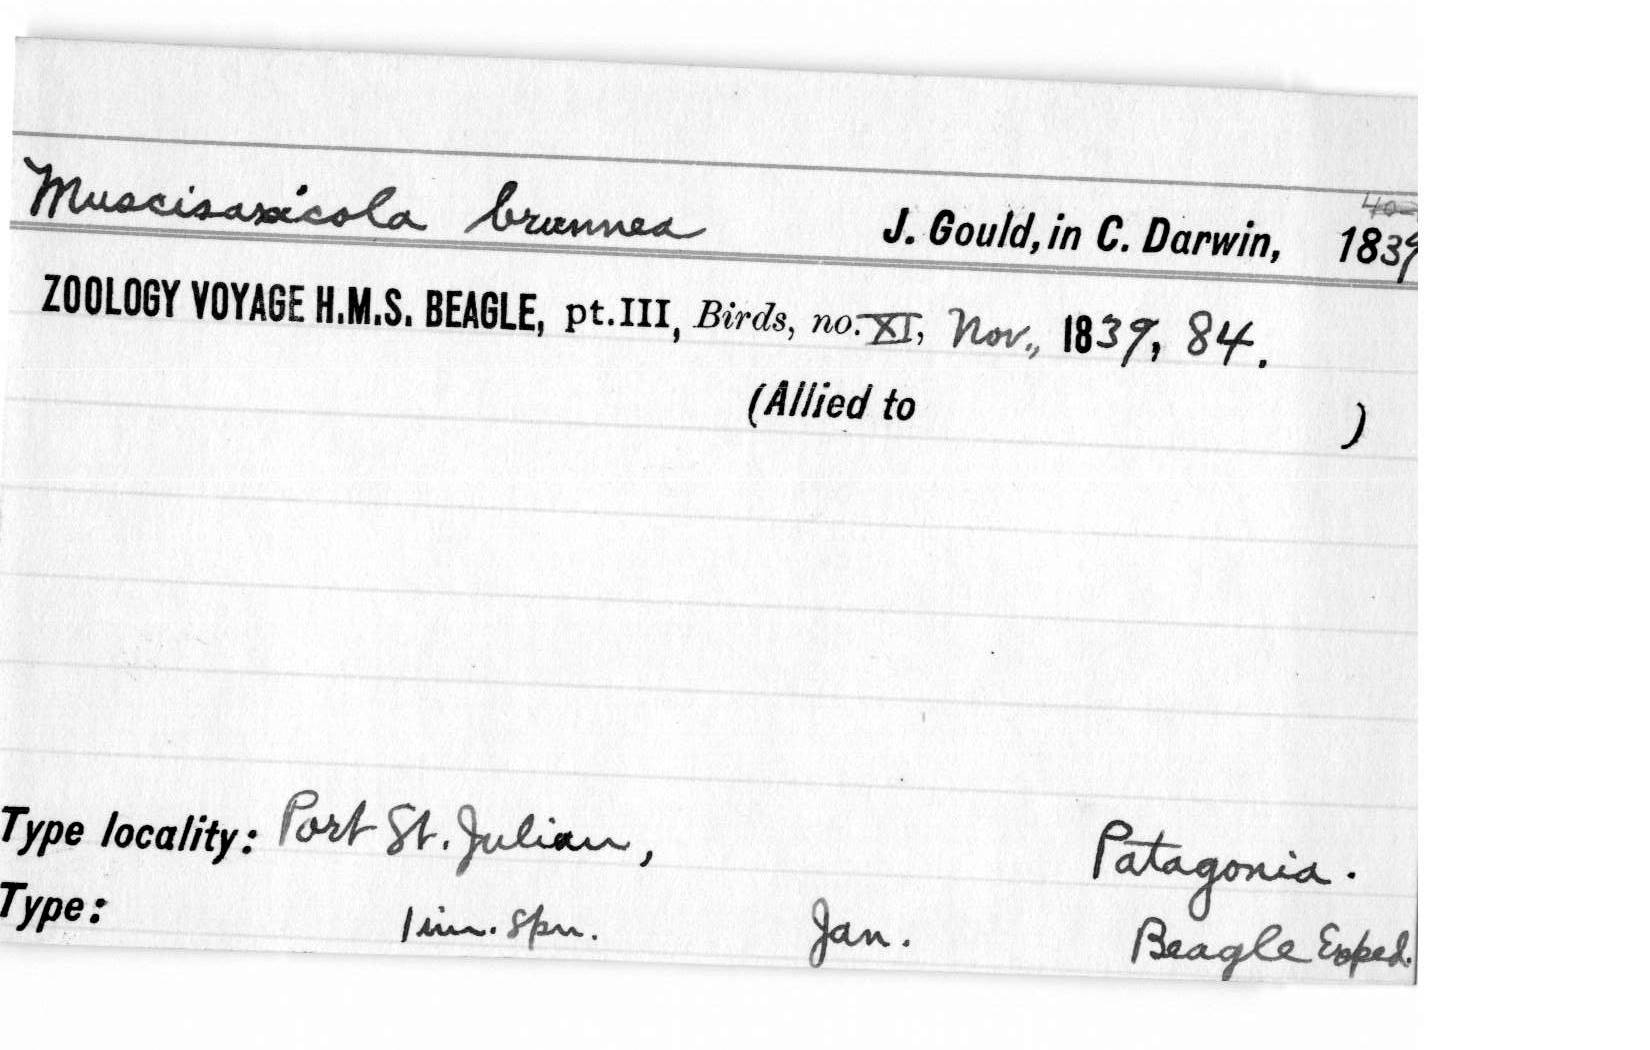 Muscisaxicola brunnea J. Gould, in C. Darwin, 1839
ZOOLOGY VOYAGE H.M.S. BEAGLE, pt.III, Birds, no. XI, Nov., 1839, 84.
(Allied to )
Type locality: Port St. Julian, Patagonia.
Type: 1 im. spn. Jan. Beagle Exped.